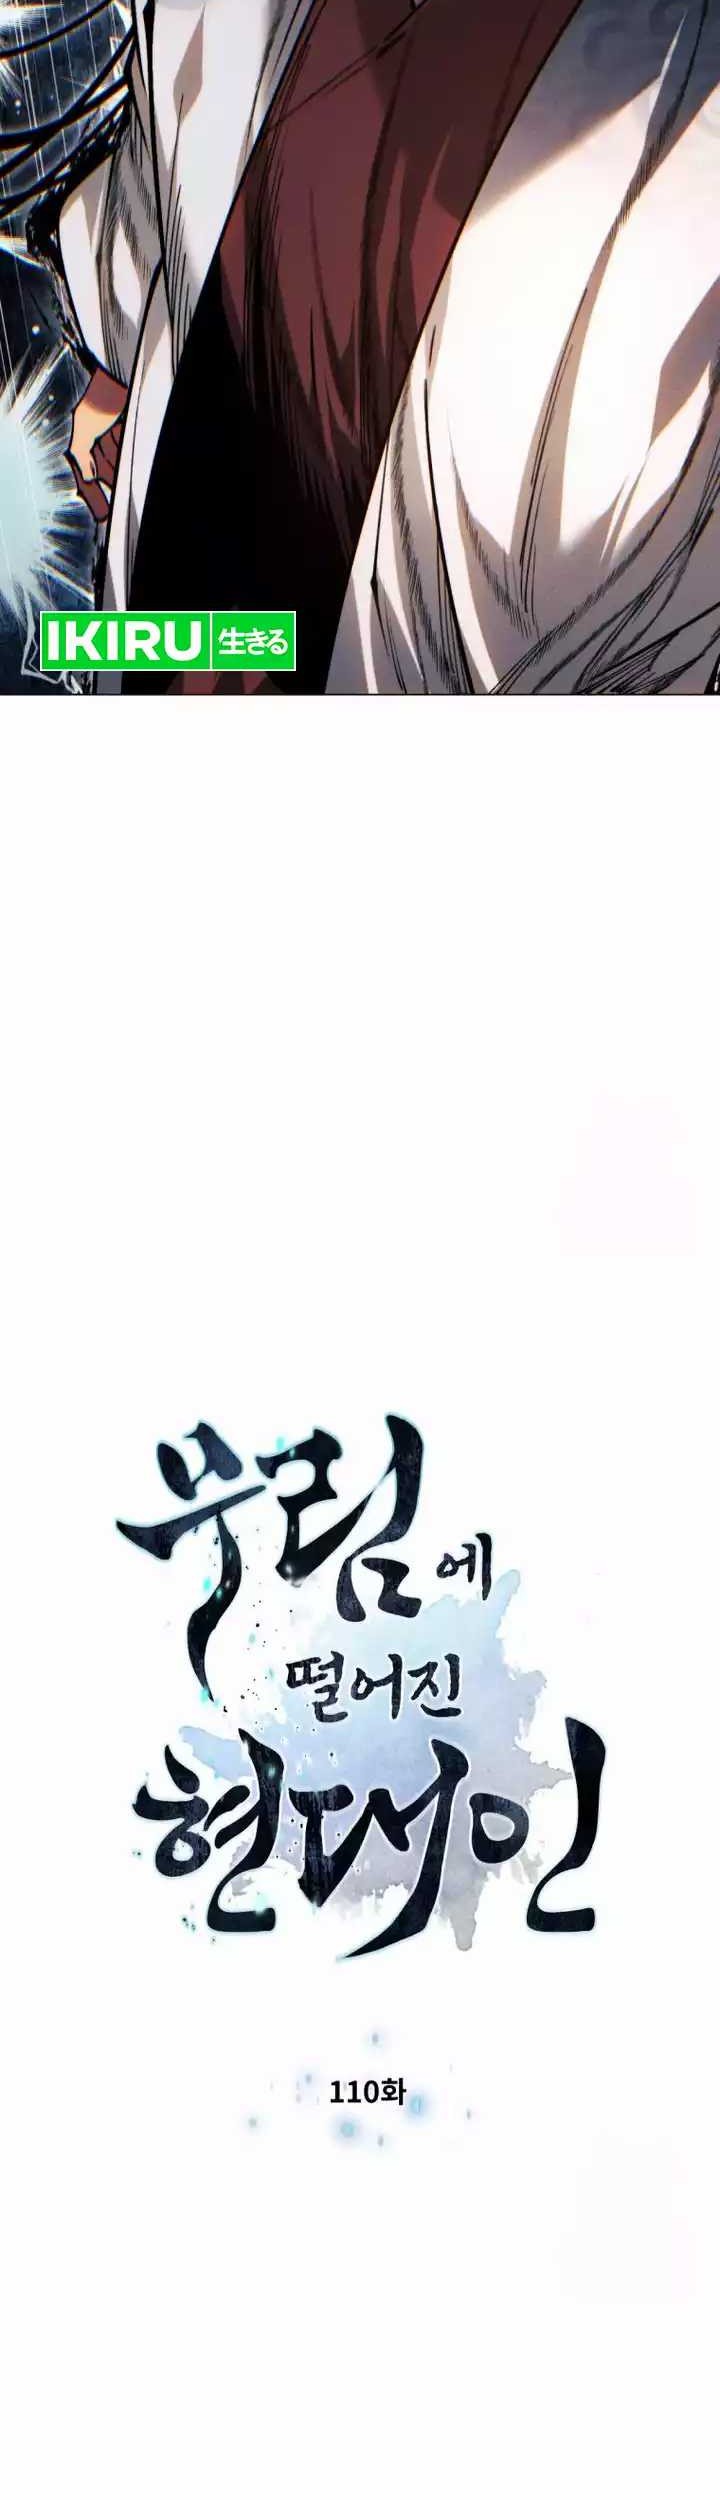 IKIRU 生きる
무림에
떨어진
현대인
110화